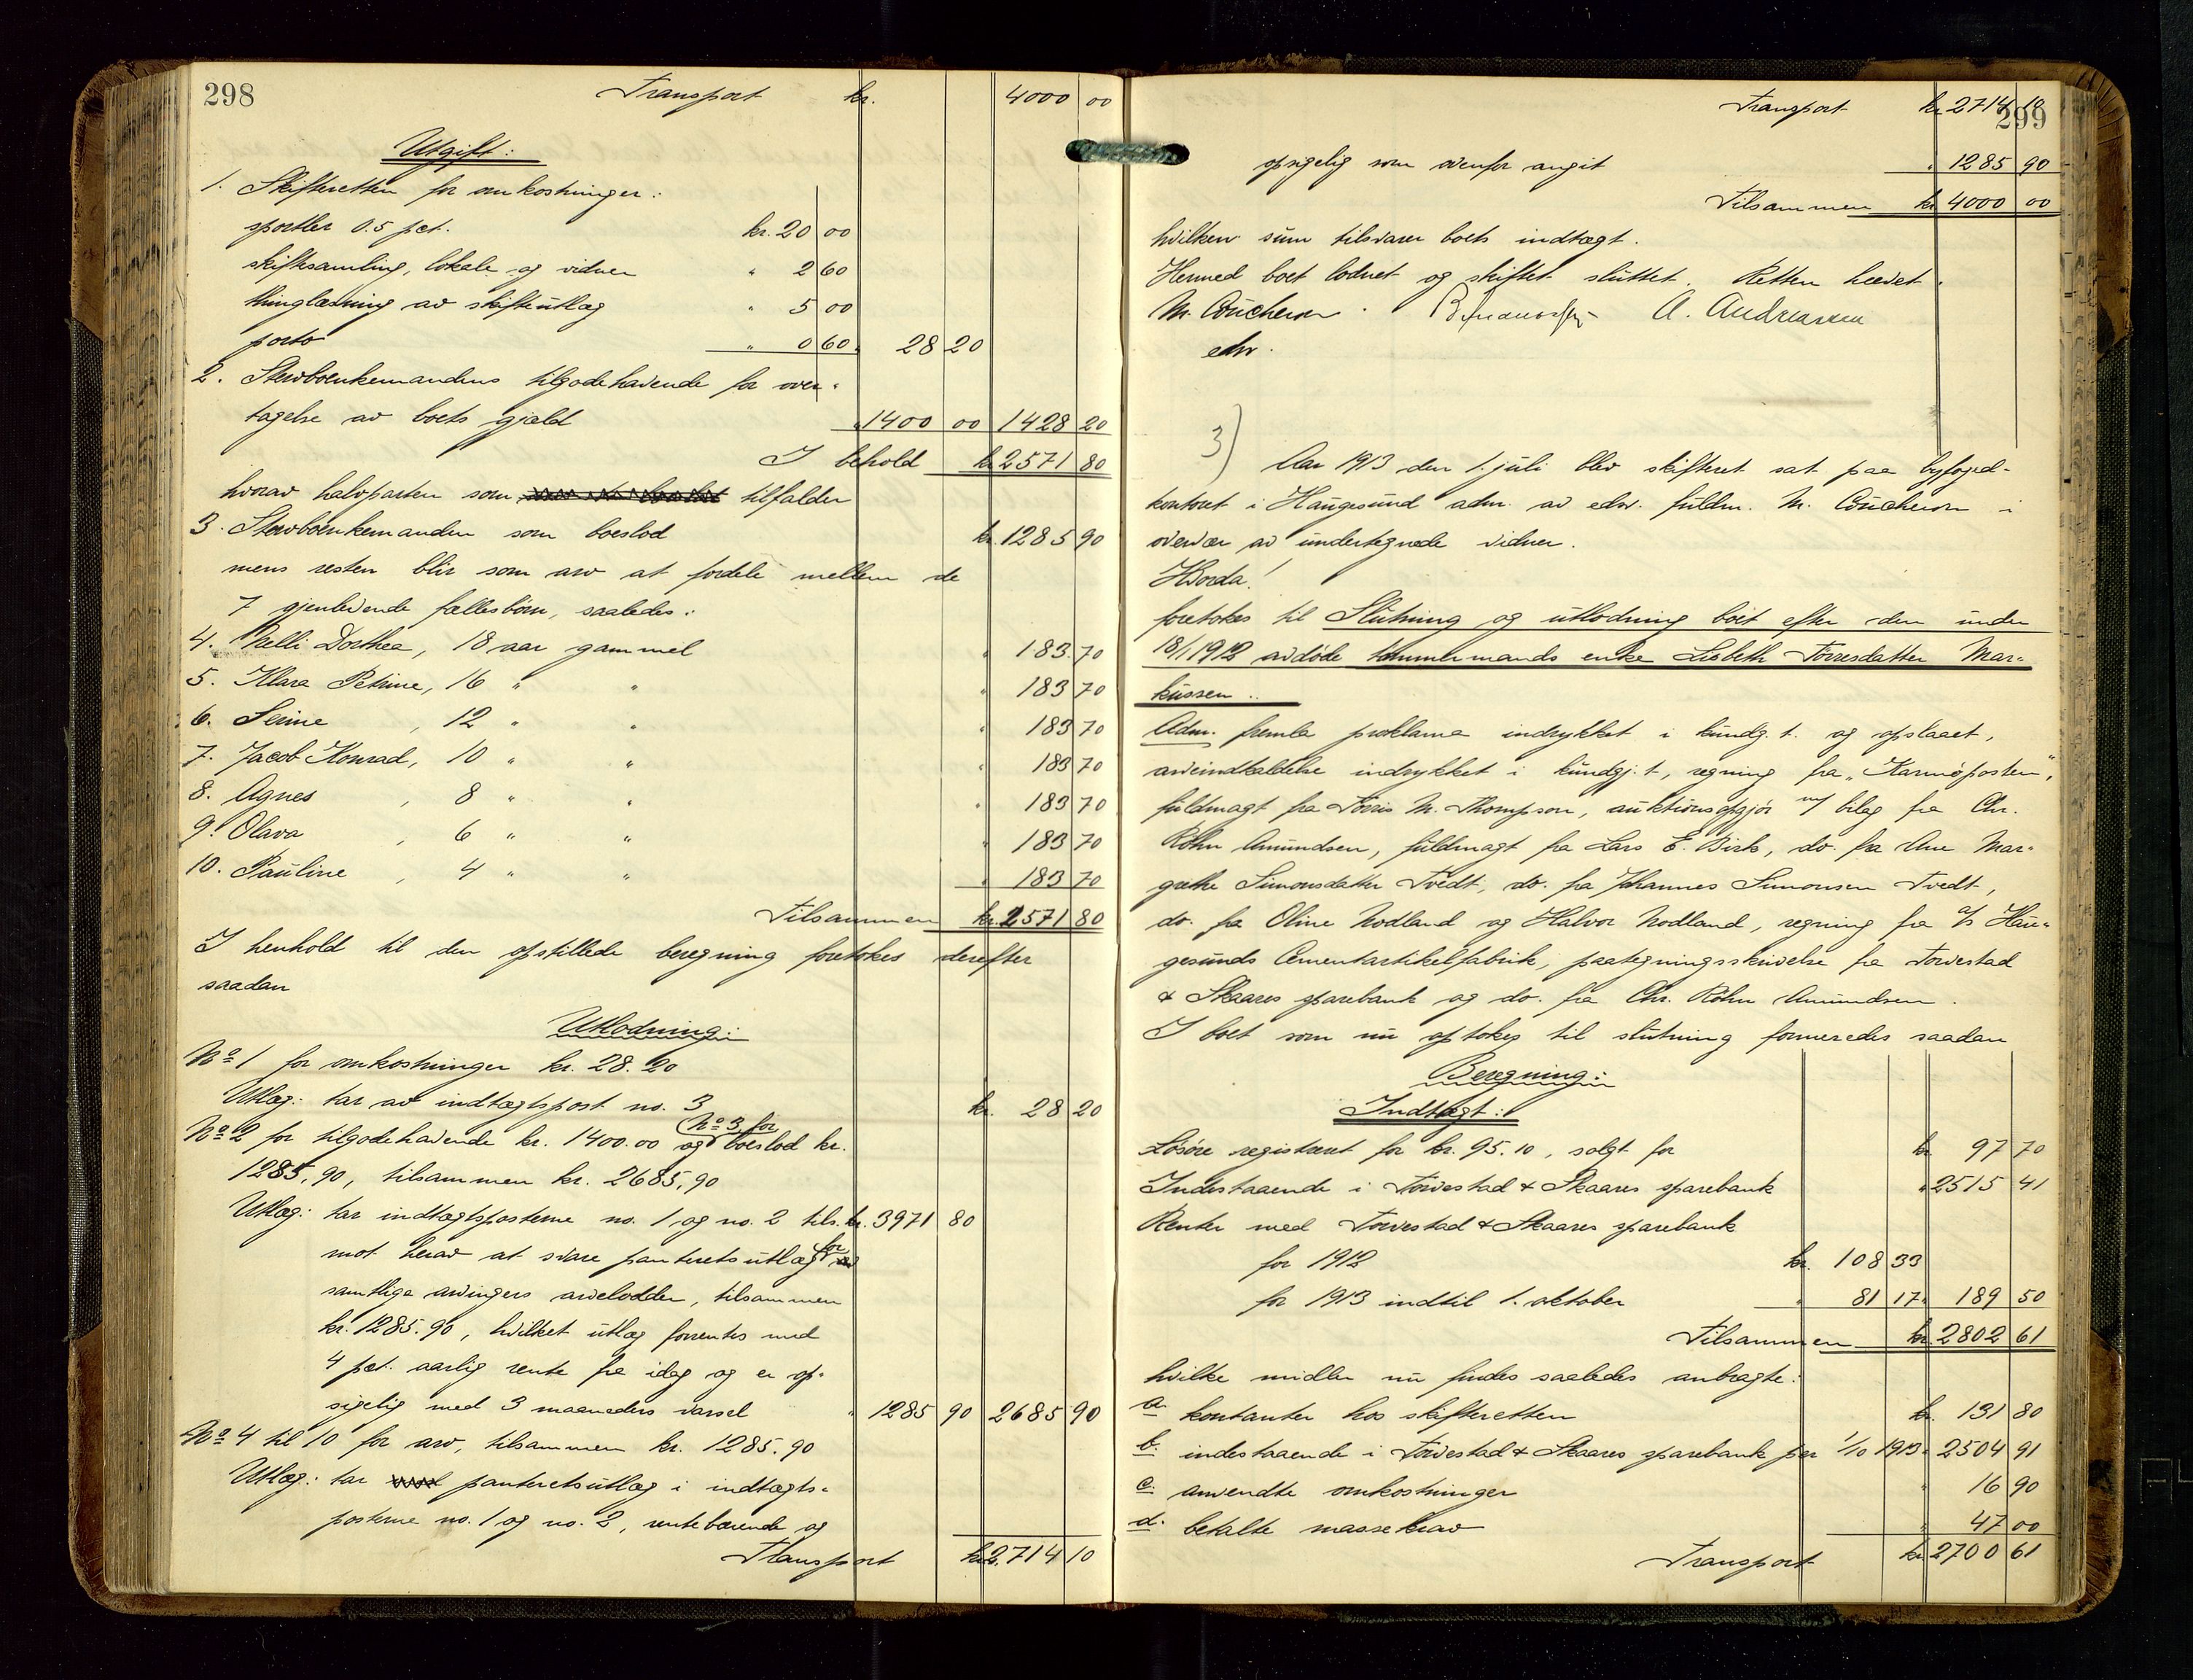 298
Transport kr. 4000 00
Utgift:
1. Skifteretten for omkostninger:
sportler 0.5 pct. kr. 20 00
skiftesamling, lokale og vidner " 2 60
thinglæsning av skifteutlæg " 5 00
porto " 0 60 28 20
2. Stervboenkemandens tilgodehavende for over-
tagelse av boets gjæld " 1400 00 1428 20
I behold kr. 2571 80
hvorav halvparten som tilfalder
3. Stervboenkemanden som boeslod kr. 1285 90
mens resten blir som arv at fordele mellem de
7 gjenlevende fællesbörn, saaledes:
4. Nelli Dorthea, 18 aar gammel " 183 70
5. Klara Petrine, 16 " " " 183 70
6. Serine , 12 " " " 183 70
7. Jacob Konrad, 10 " " " 183 70
8. Agnes , 8 " " " 183 70
9. Olava , 6 " " " 183 70
10. Pauline , 4 " " " 183 70
Tilsammen kr. 2571 80
I henhold til den opstillede beregning foretokes derefter
saadan
Utlodning:
No 1 for omkostninger kr. 28.20
Utlæg: tar av indtægtspost no. 3 kr. 28 20
No 2 for tilgodehavende kr. 1400.00 og No 3 for boeslod kr.
1285,90, tilsammen kr. 2685,90
Utlæg: tar indtægtsposterne no. 1 og no. 2 tils. kr. 3971 80
mot herav at svare panteretsutlæg for
samtlige arvingers arvelodder, tilsammen
kr. 1285.90, hvilket utlæg forrentes med
4 pct. aarlig rente fra idag og er op-
sigelig med 3 maaneders varsel " 1285 90 2685 90
No 4 til 10 for arv, tilsammen kr. 1285.90
Utlæg: tar panteretsutlæg i indtægts-
posterne no. 1 og no. 2, rentebærende og
Transport kr. 2714 10
299
Transport kr. 2714 10
opsigelig som ovenfor angit " 1285 90
Tilsammen kr. 4000 00
hvilken sum tilsvarer boets indtægt.
Hermed boet lodnet og skiftet sluttet. Retten hævet.
M. Coucheron. A. Andreassen
edsv.
3)
Aar 1913 den 1. juli blev skifteret sat paa byfoged-
kontoret i Haugesund adm. av edsv. fuldm. M. Coucheron i
overvær av undertegnede vidner.
Hvorda!
foretokes til Slutning og utlodning boet efter den under
18/1 1912 avdöde tömmermands enke Lisbeth Törresdatter Mar-
kussen..
Adm. fremla proklama indrykket i kundg. t. og opslaaet,
arveindkaldelse indrykket i kundgj. t., regning fra "Karmöposten",
fuldmagt fra Törris M. Thompson, auktionsopgjör m/ bilag fra Chr.
Röhn Amundsen, fuldmagt fra Lars E. Birk, do. fra Ane Mar-
grethe Simonsdatter Tvedt, do. fra Johannes Simonsen Tvedt,
do. fra Oline Nodland og Halvor Nodland, regning fra A/S Hau-
gesunds Cementartikelfabrik, paategningsskrivelse fra Torvestad
& Skaares sparebank og do. fra Chr. Röhn Amundsen.
I boet som nu optokes til slutning formeredes saadan
Beregning:
Indtægt:
Lösöre registreret for kr. 95.10, solgt for kr. 97 70
Indestaaende i Torvestad & Skaares sparebank " 2515 41
Renter med Torvestad & Skaares sparebank
for 1912 kr. 108 33
for 1913 indtil 1. oktober " 81 17 " 189 50
Tilsammen kr. 2802 61
hvilke midler nu findes saaledes anbragte:
a. kontanter hos skifteretten kr. 131 80
b. indestaaende i Torvestad & Skaares sparebank per 1/10 1913 " 2504 91
c. anvendte omkostninger " 16 90
d. betalte massekrav " 47 00
Transport kr. 2700 61